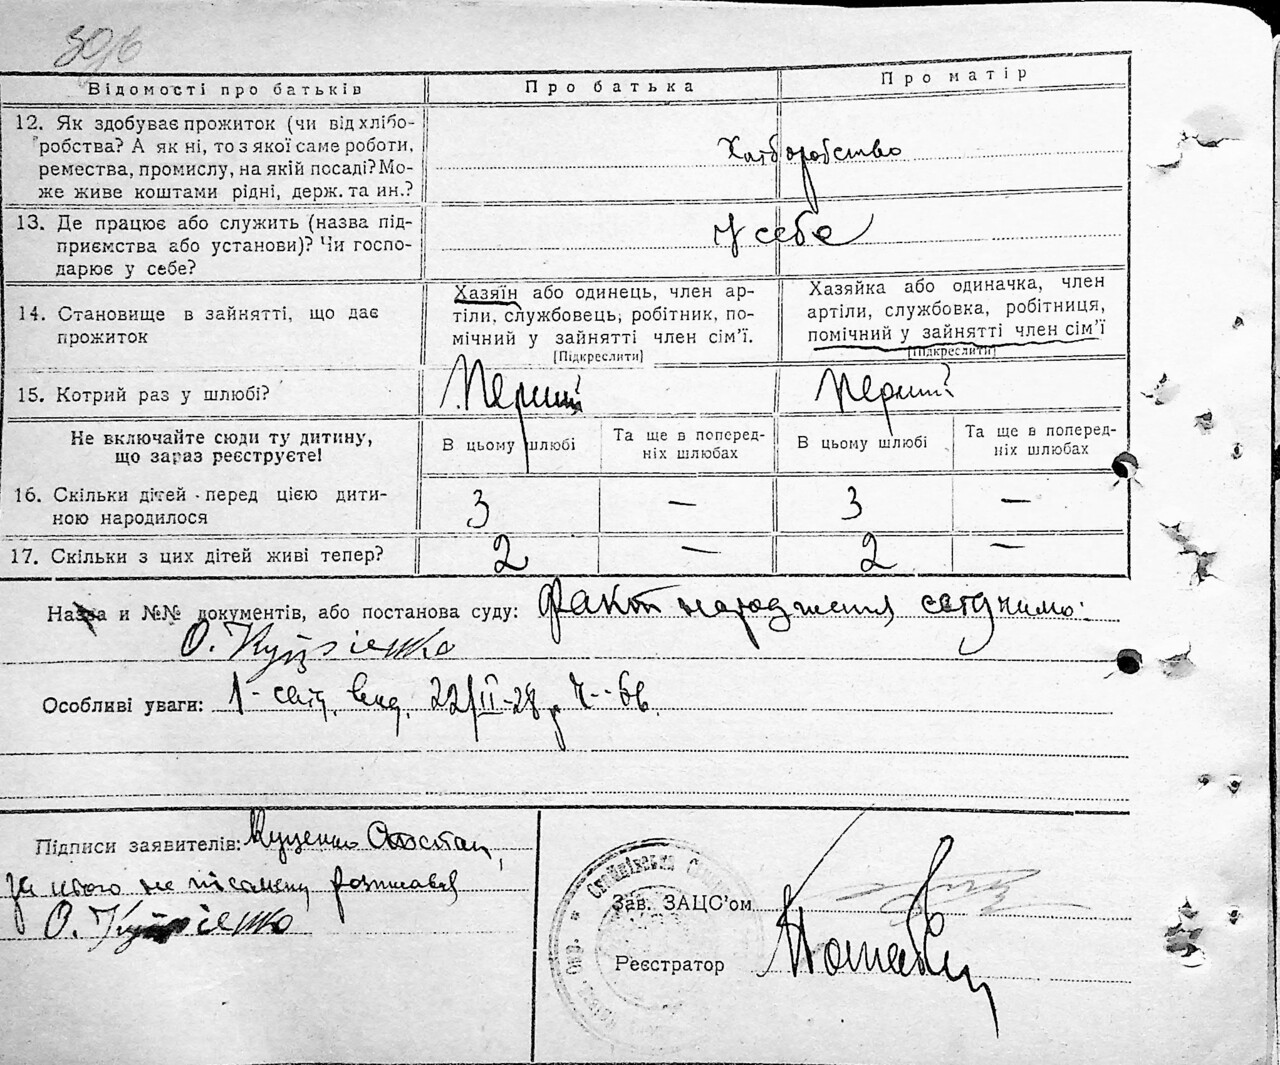 Відомості про батьків
Про батька
Про матір
12. Як здобуває прожиток (чи від хлібо-
робства? А як ні, то з якої саме роботи,
ремества, промислу, на якій посаді? Мо-
же живе коштами рідні, держ. та ин.?
Хліборобство
13. Де працює або служить (назва під-
приємства або установи)? Чи госпо-
дарює у себе?
у себе
14. Становище в зайнятті, що дає
прожиток
Хазяїн або одинець, член ар-
тіли, службовець, робітник, по-
мічний у зайнятті член сім'ї.
[Підкреслити]
Хазяйка або одиначка, член
артіли, службовка, робітниця,
помічний у зайнятті член сім'ї
[Підкреслити]
15. Котрий раз у шлюбі?
Перший
Перший
Не включайте сюди ту дитину,
що зараз реєструєте!
В цьому шлюбі
Та ще в поперед-
ніх шлюбах
В цьому шлюбі
Та ще в поперед-
ніх шлюбах
16. Скільки дітей перед цією дити-
ною народилося
3 — 3 —
17. Скільки з цих дітей живі тепер?
2 — 2 —
Назва и №№ документів, або постанова суду: Факт народження свідчимо:
Особливі уваги: 1- свід. вид. 22/II-28 р.
Підписи заявителів: Куценко Остап,
за його не письмену розписався
Зав. ЗАЦС'ом
Реєстратор